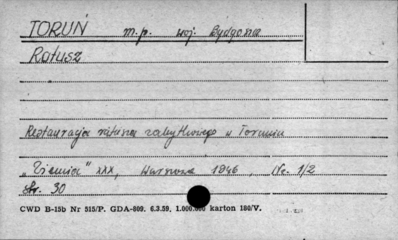 TORUŃ m.p. woj. Bydgoma
Ratusz
Restauracja ratusza zabytkowego w Toruniu
„Ziemia" XXX, Warszawa 1946, Nr. 1/2
str. 30
CWD B-15b Nr 515/P. GDA-809. 6.3.59. 1.000.000 karton 180/V.